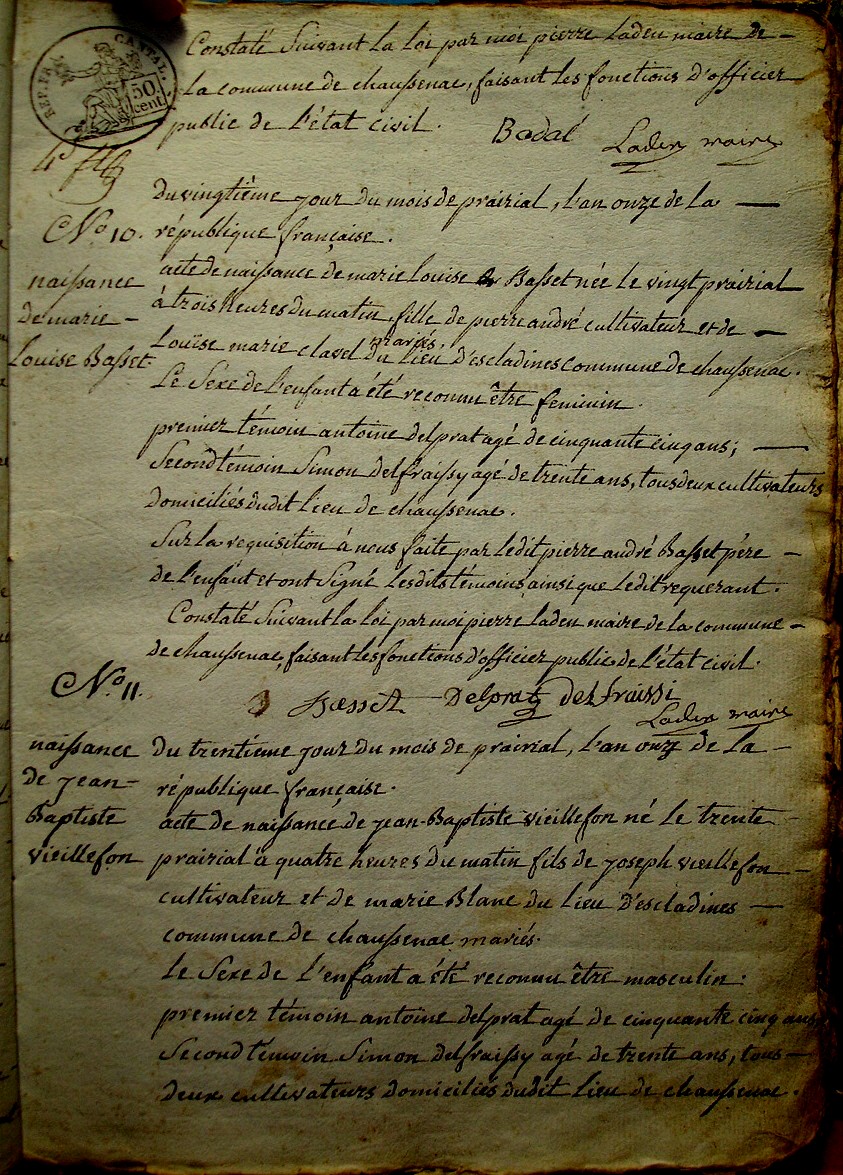 REP. FRA. CANTAL.
50.
cent.
Constaté Suivant la loi par moi pierre Laden maire de
la commune de chaussenac, faisant les fonctions d'officier
public de l'état civil.
Badal Laden maire
Du vingtième jour du mois de prairial, l'an onze de la
No 10. république française.
naissance
de marie
Louise Basset
acte de naissance de marie Louise Basset née le vingt prairial
à trois heures du matin, fille de pierre andré cultivateur et de
mariés.
Louise marie clavel du lieu d'escladines commune de chaussenac.
Le Sexe de l'enfant a été reconnu être feminin.
premier témoin antoine delprat agé de cinquante cinq ans;
Second témoin Simon delfraissy agé de trente ans, tous deux cultivateurs
domiciliés dudit lieu de chaussenac.
Sur la requisition à nous faite par ledit pierre andré Basset père
de l'enfant et ont Signé lesdits témoins ainsi que ledit requerant.
Constaté Suivant la loi par moi pierre laden maire de la commune
de chaussenac, faisant les fonctions d'officier public de l'état civil.
No 11.
Basset Delprat delfraissi
Laden maire
naissance
de jean-
Baptiste
vieillefon
Du trentieme jour du mois de prairial, l'an onze de la
république française.
acte de naissance de jean-Baptiste vieillefon né le trente
prairial à quatre heures du matin fils de joseph vieillefon
cultivateur et de marie Blanc du lieu d'escladines
commune de chaussenac mariés.
Le Sexe de l'enfant a été reconnu être masculin:
premier témoin antoine delprat agé de cinquante cinq ans
Second temoin Simon delfraissy agé de trente ans, tous
deux cultivateurs domiciliés dudit lieu de chaussenac.